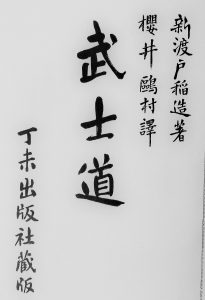 新渡戸稲造著
櫻井鷗村譯
武士道
丁未出版社蔵版